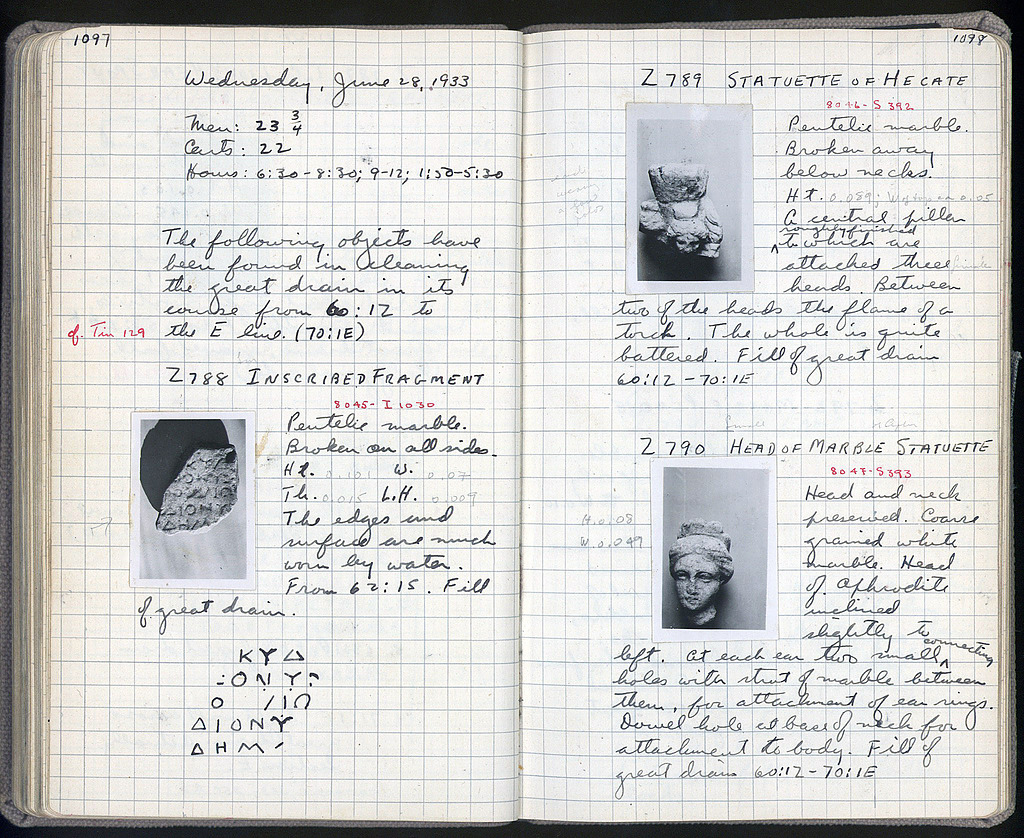 1097
Wednesday, June 28, 1933
Men: 23 3/4
Carts: 22
Hours: 6:30-8:30; 9-12; 1:30-5:30
The following objects have
been found in cleaning
the great drain in its
course from 60:12 to
cf. Tin 129 the E line. (70:1E)
Z 788 INSCRIBED FRAGMENT
8045- I 1030
Pentelic marble.
Broken on all sides.
Ht. 0.101 W. 0.07
Th. 0.015 L.H. 0.009
The edges and
surface are much
worn by water.
From 62:15. Fill
of great drain.
ΚΥΔ
ΟΝΥ
Ο ΙΩ
ΔΙΟΝΥ
ΔΗΜ
1098
Z 789 STATUETTE OF HECATE
8046-S 392
Pentelic marble.
Broken away
below necks.
Ht. 0.089; W. of top 0.05
A central pillar
roughly finished
^ to which are
attached three
heads. Between
two of the heads the flame of a
torch. The whole is quite
battered. Fill of great drain
60:12-70:1E
Small
Z 790 HEAD OF MARBLE STATUETTE
8047-S393
Head and neck
preserved. Coarse
H. 0.08
grained white
W. 0.049
marble. Head
of Aphrodite
inclined
slightly to
connecting
left. At each ear two small ^
holes with strut of marble between
them, for attachment of ear rings.
Dowel hole at base of neck for
attachment to body. Fill of
great drain 60:12-70:1E